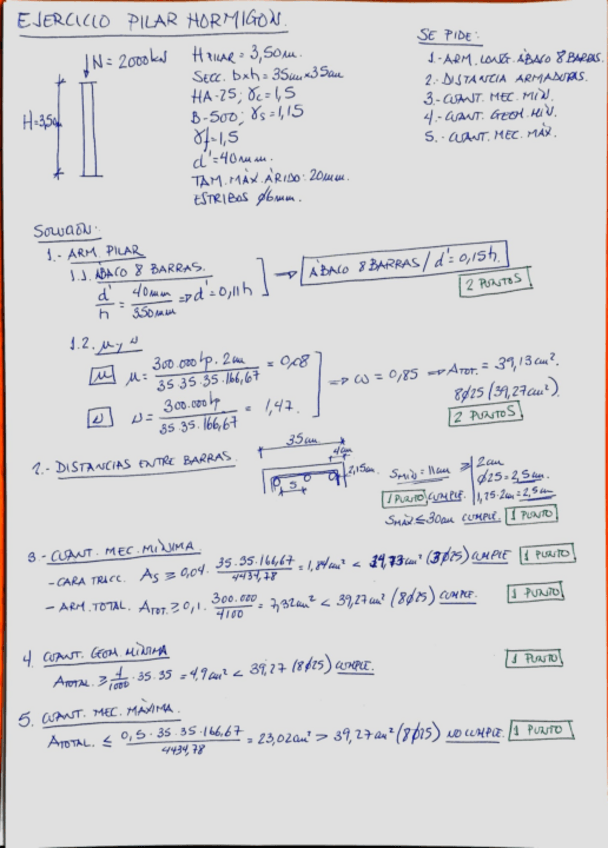 EJERCICIO PILAR HORMIGÓN.
N = 2000kN
H=3,50
H PILAR = 3,50m.
SECC. b×h = 35cm×35cm
HA-25; γc = 1,5
B-500; γs = 1,15
γf = 1,5
d' = 40mm.
TAM. MÁX. ÁRIDO: 20mm.
ESTRIBOS ϕ6mm.
SE PIDE:
1.- ARM. LONG. ÁBACO 8 BARRAS.
2.- DISTANCIA ARMADURAS.
3.- CUANT. MEC. MÍN.
4.- CUANT. GEOM. MÍN.
5.- CUANT. MEC. MÁX.
SOLUCIÓN:
1.- ARM. PILAR
1.1. ÁBACO 8 BARRAS.
d'/h = 40mm/350mm => d' = 0,11h ] → ÁBACO 8 BARRAS / d' = 0,15h.
2 PUNTOS
1.2. μ y ν
μ μ = 300.000kp. 2cm / 35.35.35.166,67 = 0,08
ν ν = 300.000kp / 35.35.166,67 = 1,47.
=> ω = 0,85 => ATOT. = 39,13cm².
8ϕ25 (39,27cm²)
2 PUNTOS
2.- DISTANCIAS ENTRE BARRAS.
35cm
4cm
2,15cm
S
SMÍN = 11cm ≥ 2cm
ϕ25 = 2,5cm.
1,25.2cm = 2,5cm
1 PUNTO CUMPLE.
SMÁX ≤ 30cm CUMPLE. 1 PUNTO
3.- CUANT. MEC. MÍNIMA.
- CARA TRACC. As ≥ 0,04 . 35.35.166,67 / 4434,78 = 1,84cm² < 14,73cm² (3ϕ25) CUMPLE 1 PUNTO
- ARM. TOTAL. ATOT. ≥ 0,1 . 300.000 / 4100 = 7,32cm² < 39,27cm² (8ϕ25) CUMPLE. 1 PUNTO
4. CUANT. GEOM. MÍNIMA
ATOTAL. ≥ 4/1000 . 35.35 = 4,9cm² < 39,27 (8ϕ25) CUMPLE. 1 PUNTO
5. CUANT. MEC. MÁXIMA.
ATOTAL. ≤ 0,5 . 35.35.166,67 / 4434,78 = 23,02cm² > 39,27cm² (8ϕ25) NO CUMPLE. 1 PUNTO